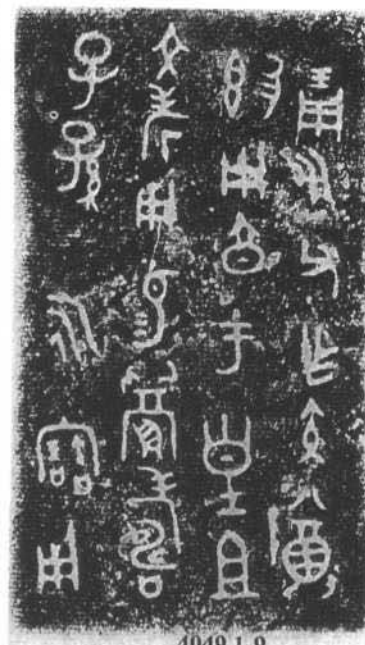 琱伐父乍交尊
𣪘用亯于皇且
文考用易眉壽
子孫永寶用
4049.1